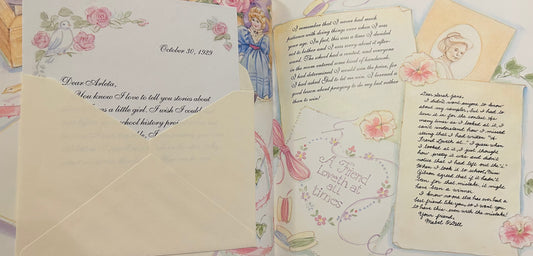 October 30, 1929
Dear Arleta,
You know I love to tell you stories about
as a little girl. I wish I could
school history pro
I remember that I never had much
patience with doing things over when I was
your age. In fact, this was a time I decided
not to bother and I was sorry about it after-
ward. The school had a contest, and everyone
in the room entered some kind of handwork.
I had determined I would win the prize, for
I had asked God to let me win. I learned a
good lesson about praying to do my best rather
than to win!
A Friend
Loveth at
all
times
Dear Sarah-Jane,
I didn't want anyone to know
about my sampler, but I had to
turn it in for the contest. As
many times as I looked at it, I
can't understand how I missed
seeing that I had written "A
Friend Loveth at." I guess when
I looked at it, I just thought
how pretty it was and didn't
notice that I had left out the "l."
When I took it to school, Miss
Gibson agreed that if it hadn't
been for that mistake, it might
have been a winner.
I know no one else has ever had a
best friend like you, so I want you
to have this even with the mistake!
Your friend,
Mabel